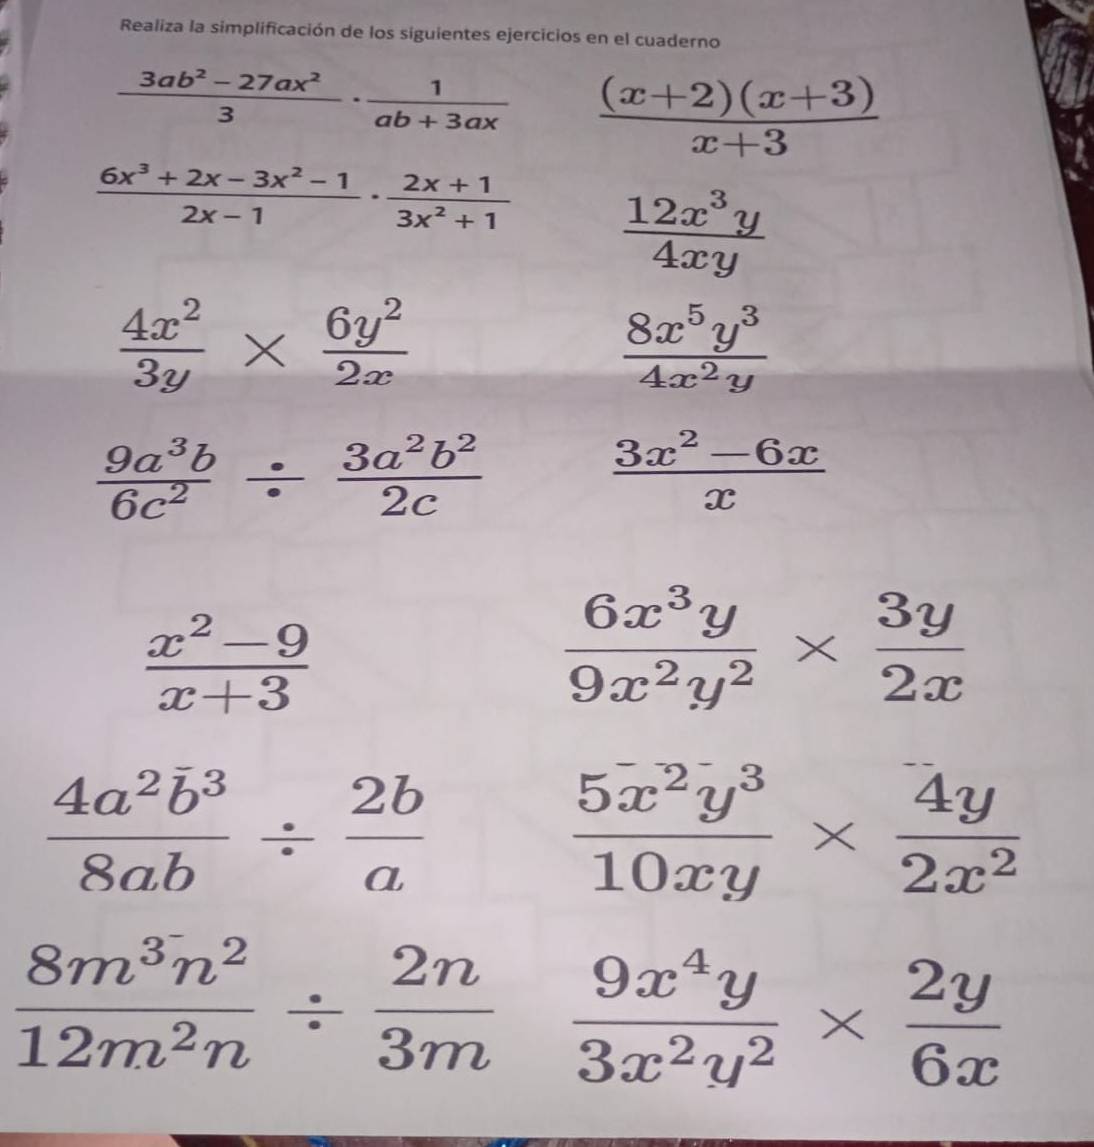 Realiza la simplificación de los siguientes ejercicios en el cuaderno
\frac{3ab² − 27ax²}{3} · \frac{1}{ab + 3ax}
\frac{(x+2)(x+3)}{x+3}
\frac{6x³ + 2x − 3x² − 1}{2x − 1} · \frac{2x + 1}{3x² + 1}
\frac{12x³y}{4xy}
\frac{4x²}{3y} × \frac{6y²}{2x}
\frac{8x⁵y³}{4x²y}
\frac{9a³b}{6c²} ÷ \frac{3a²b²}{2c}
\frac{3x² − 6x}{x}
\frac{x² − 9}{x+3}
\frac{6x³y}{9x²y²} × \frac{3y}{2x}
\frac{4a²b³}{8ab} ÷ \frac{2b}{a}
\frac{5x²y³}{10xy} × \frac{4y}{2x²}
\frac{8m³n²}{12m²n} ÷ \frac{2n}{3m}
\frac{9x⁴y}{3x²y²} × \frac{2y}{6x}